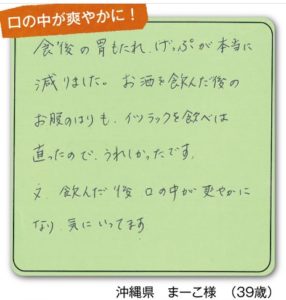 口の中が爽やかに！
食後の胃もたれ、げっぷが本当に
減りました。お酒を飲んだ後の
お腹のはりも、イツラックを飲べば
直ったので、うれしかったです。
又、飲んだ後 口の中が爽やかに
なり、気にいってます
沖縄県　まーこ様　（39歳）